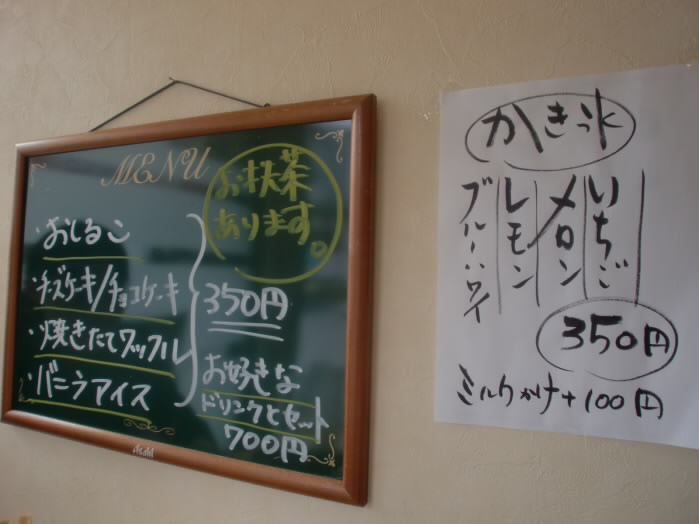 MENU
お抹茶
あります。
・おしるこ
・チーズケーキ/チョコケーキ
・焼きたてワッフル
・バニラアイス
350円
お好きな
ドリンクとセット
700円
Asahi
かき氷
いちご
メロン
レモン
ブルーハワイ
350円
ミルクかけ+100円